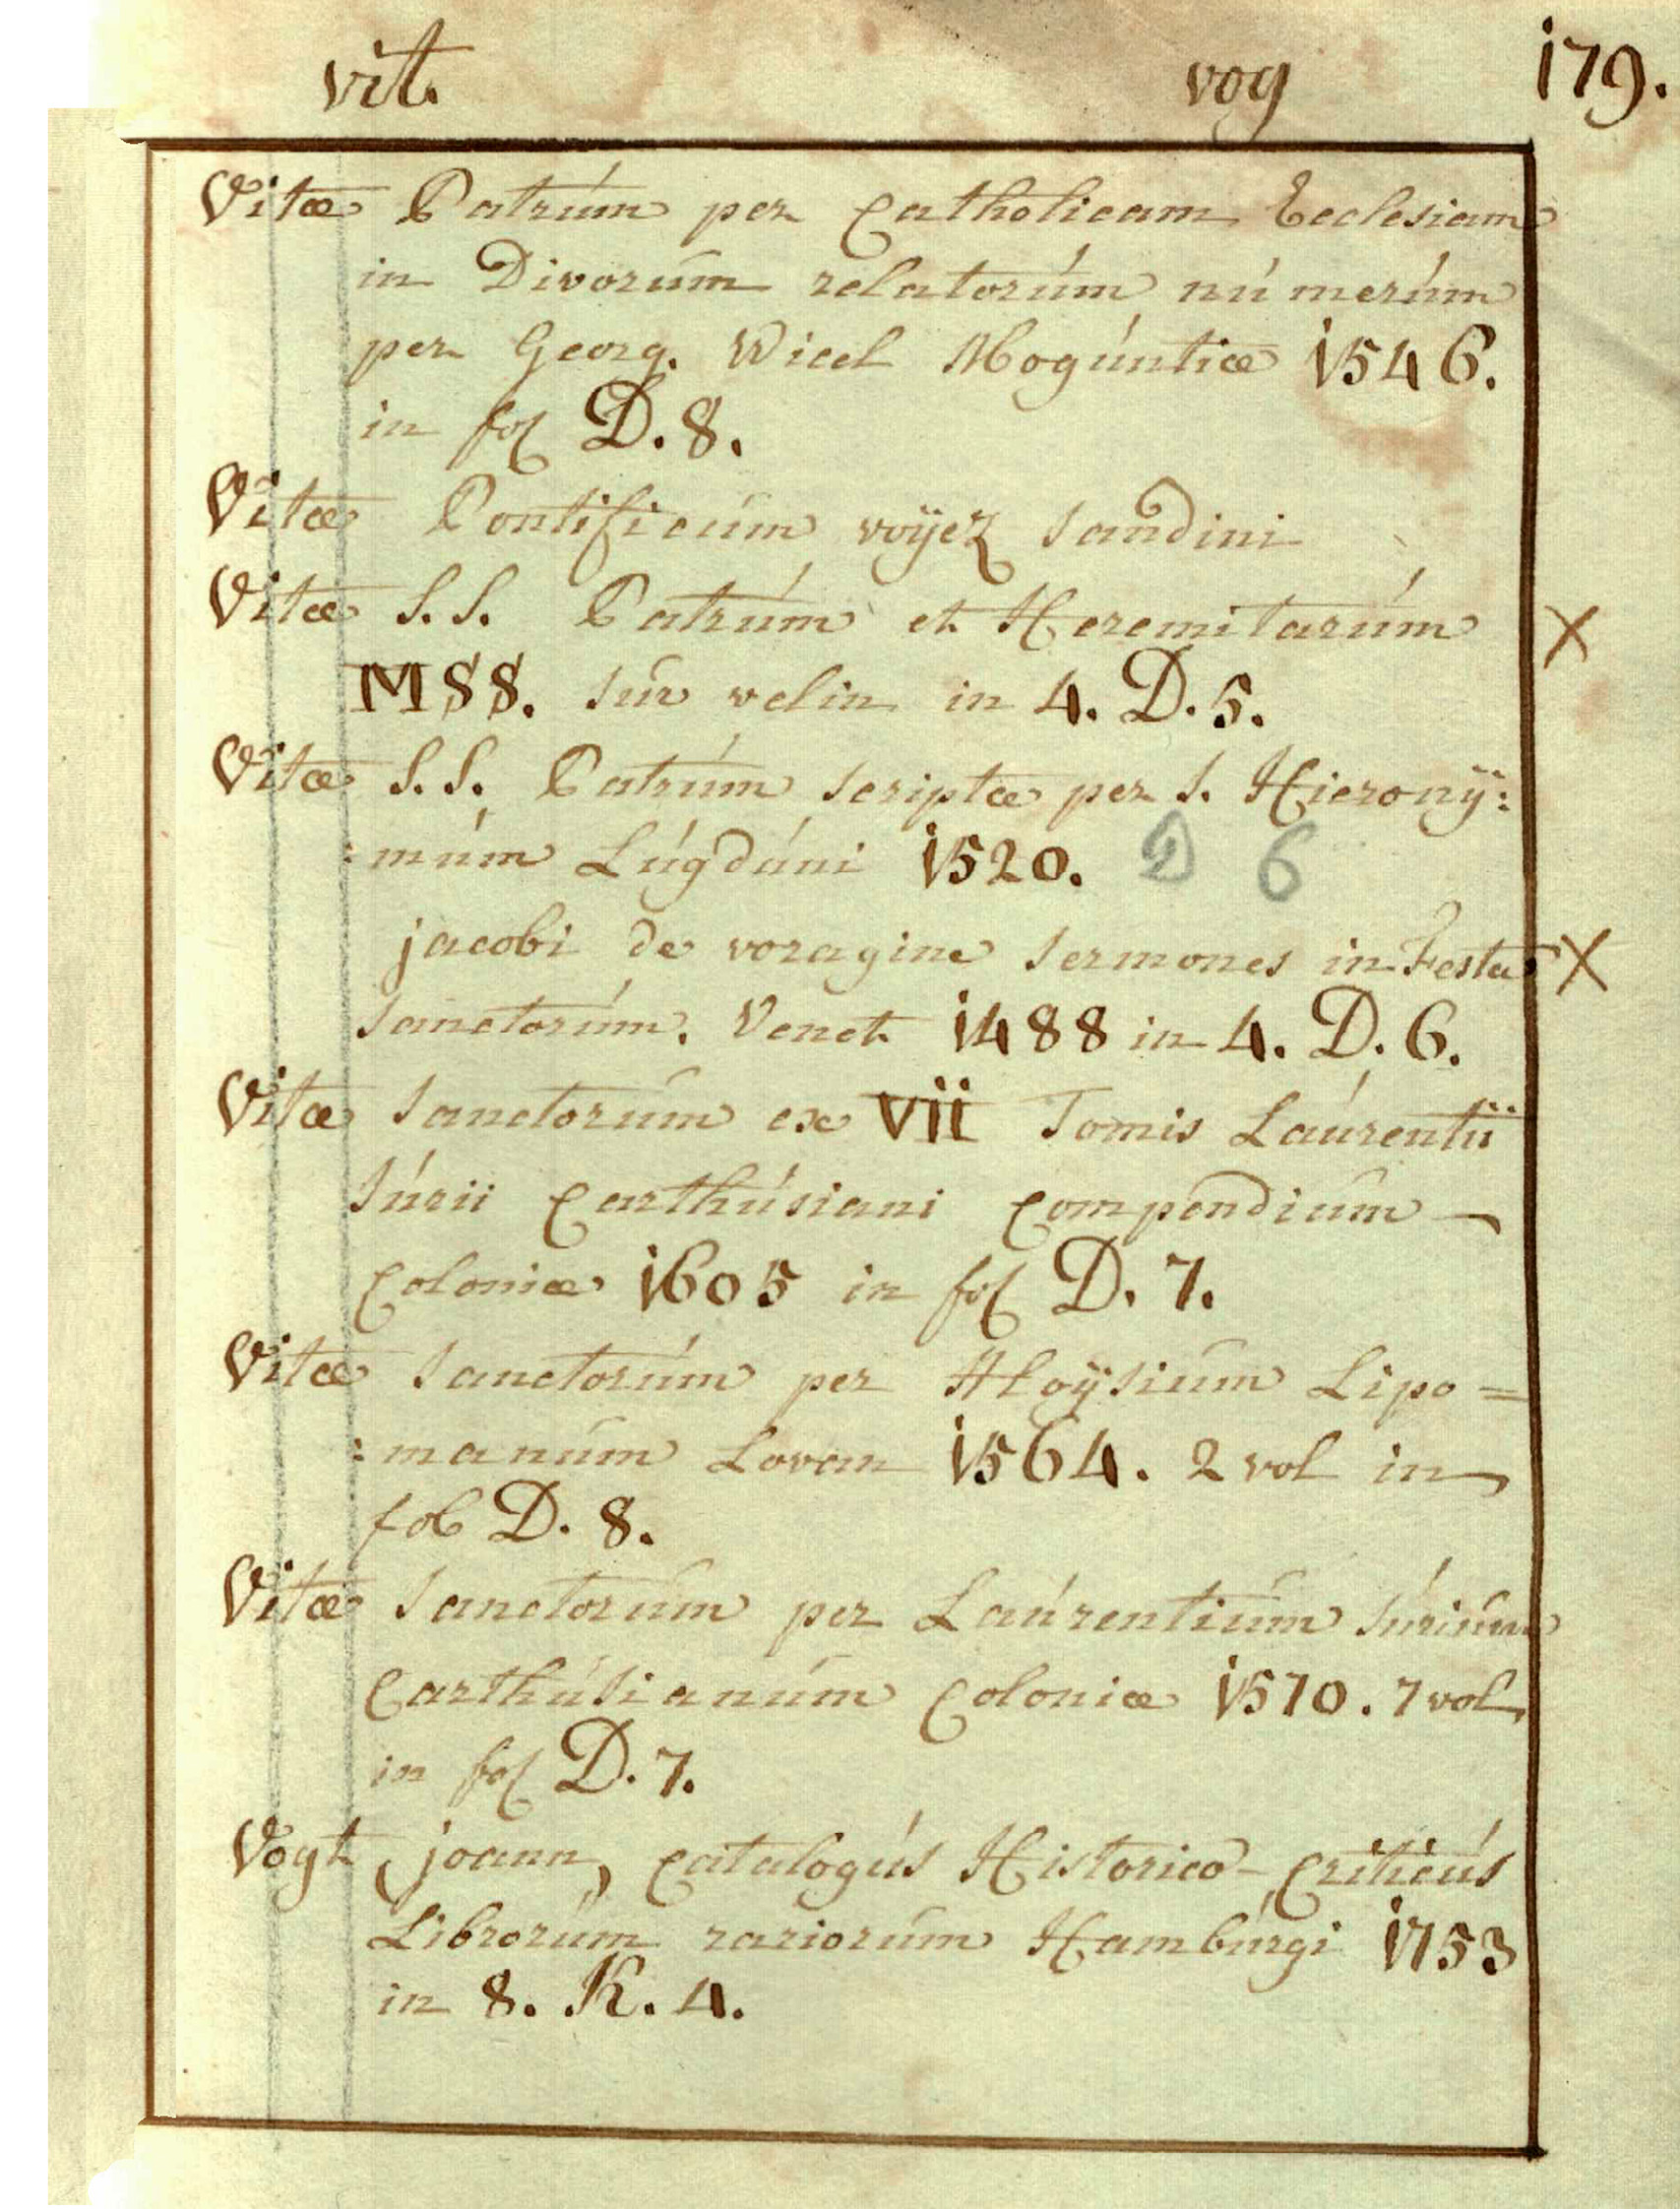 vit. vog 179.
Vitæ Patrúm per Catholicam Ecclesiam
in Divorúm relatorúm númerúm
per Georg. Wicel Mogúntiæ 1546.
in fol D. 8.
Vitæ Pontificúm voÿez Sandini
Vitæ S. S. Patrúm et Heremitarúm X
MSS. súr velin in 4. D. 5.
Vitæ S. S. Patrúm scriptæ per S. Hieronÿ:
:múm Lúgdúni 1520. D 6
jacobi de voragine Sermones in Festa X
Sanctorúm. Venet 1488 in 4. D. 6.
Vitæ Sanctorúm ex vii Tomis Laúrentii
Súrii Carthúsiani Compendiúm
Coloniæ 1605 in fol D. 7.
Vitæ Sanctorúm per Aloÿsiúm Lipo=
:manúm Lovan 1564. 2 vol in
fol D. 8.
Vitæ Sanctorúm per Laúrentiúm Súriúm
Carthúsianúm Coloniæ 1570. 7 vol
in fol D. 7.
Vogt (joann) Catalogús Historico-Criticús
Librorúm rariorúm Hambúrgi 1753
in 8. K. 4.